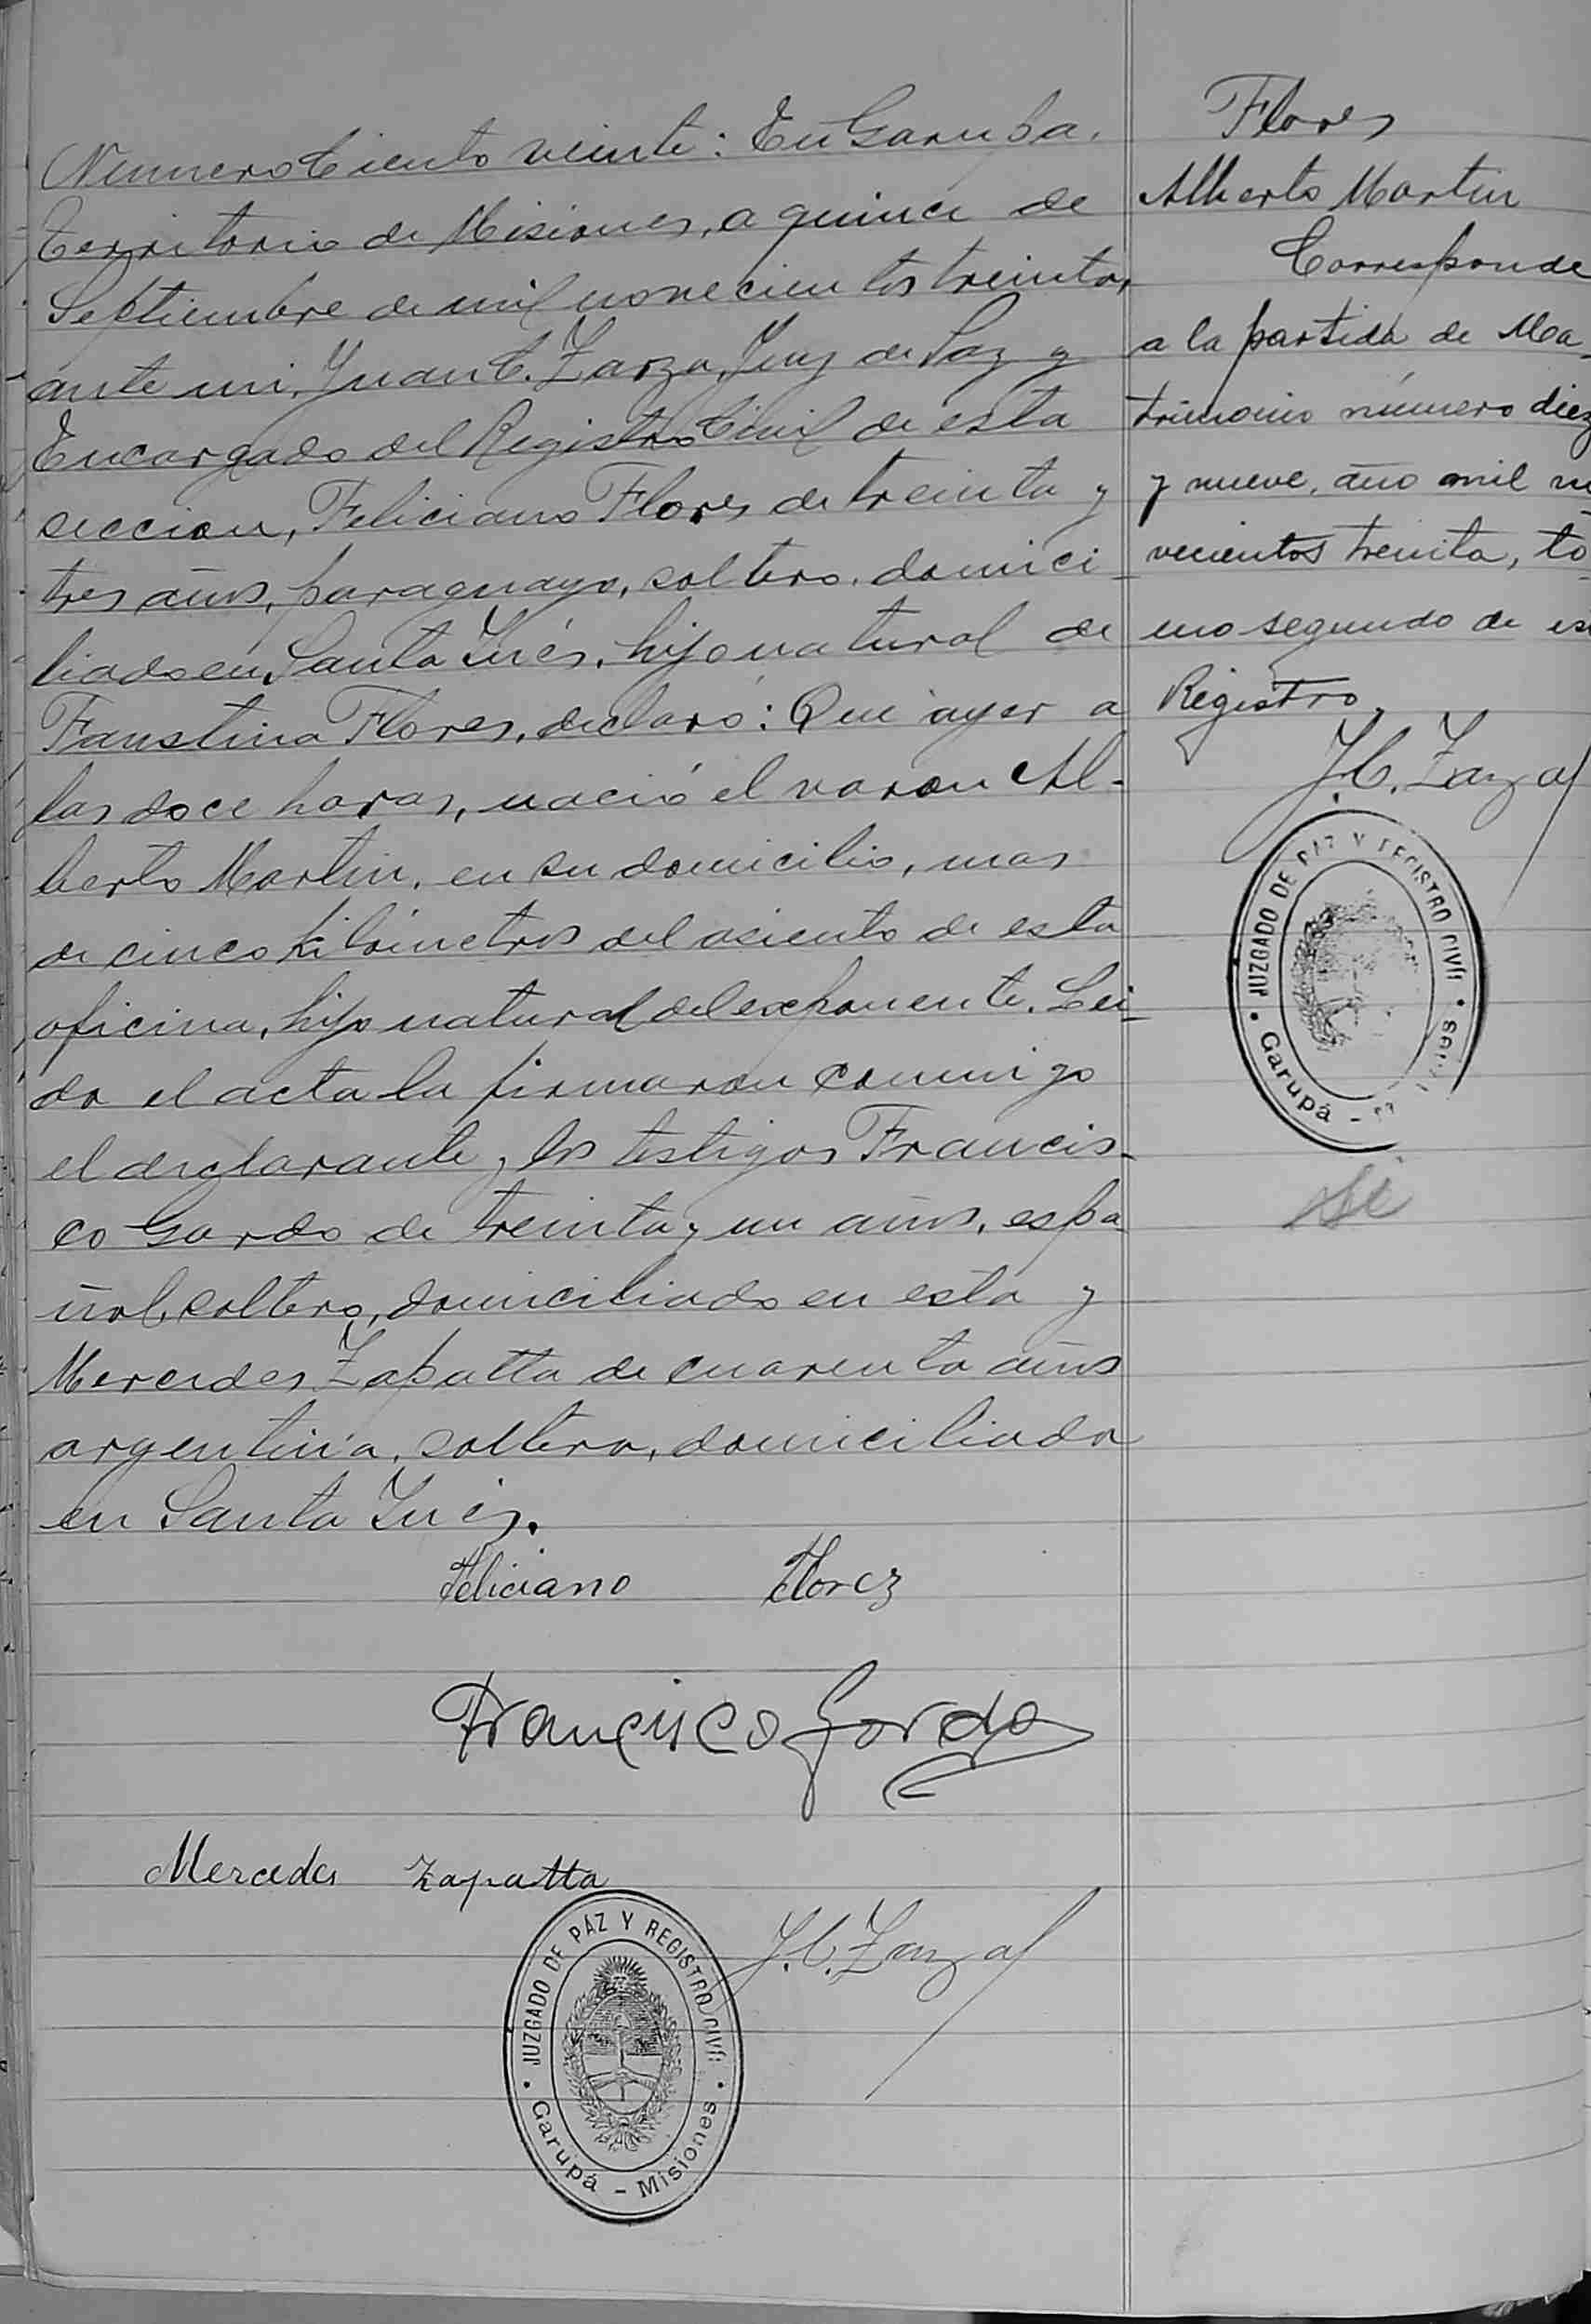 Numero Ciento veinte: En Garupa.
Territorio de Misiones, a quince de
Septiembre de mil novecientos treinta,
ante mi, Juan C. Zarza, Juez de Paz y
Encargado del Registro Civil de esta
seccion, Feliciano Flores de treinta y
tres años, paraguayo, soltero, domici-
liado en Santa Inés, hijo natural de
Faustina Flores, declaró: Que ayer a
las doce horas, nació el varon Al-
berto Martin, en su domicilio, mas
de cinco kilómetros del asiento de esta
oficina, hijo natural del exponente. Lei-
da el acta la firmaron conmigo
el declarante y los testigos Francis-
co Gordo de treinta y un años, espa
ñol, soltero, domiciliado en esta y
Mercedes Zapatta de cuarenta años
argentina, soltera, domiciliada
en Santa Inés.
Feliciano Florez
Francisco Gordo
Mercedes Zapatta
J. C. Zarza
JUZGADO DE PAZ Y REGISTRO CIVIL
Garupá - Misiones
Flores
Alberto Martin
Corresponde
a la partida de Ma-
trimonio número diez
y nueve, año mil no
vecientos treinta, to-
mo segundo de es
Registro.
J. C. Zarza
JUZGADO DE PAZ Y REGISTRO CIVIL
Garupá -